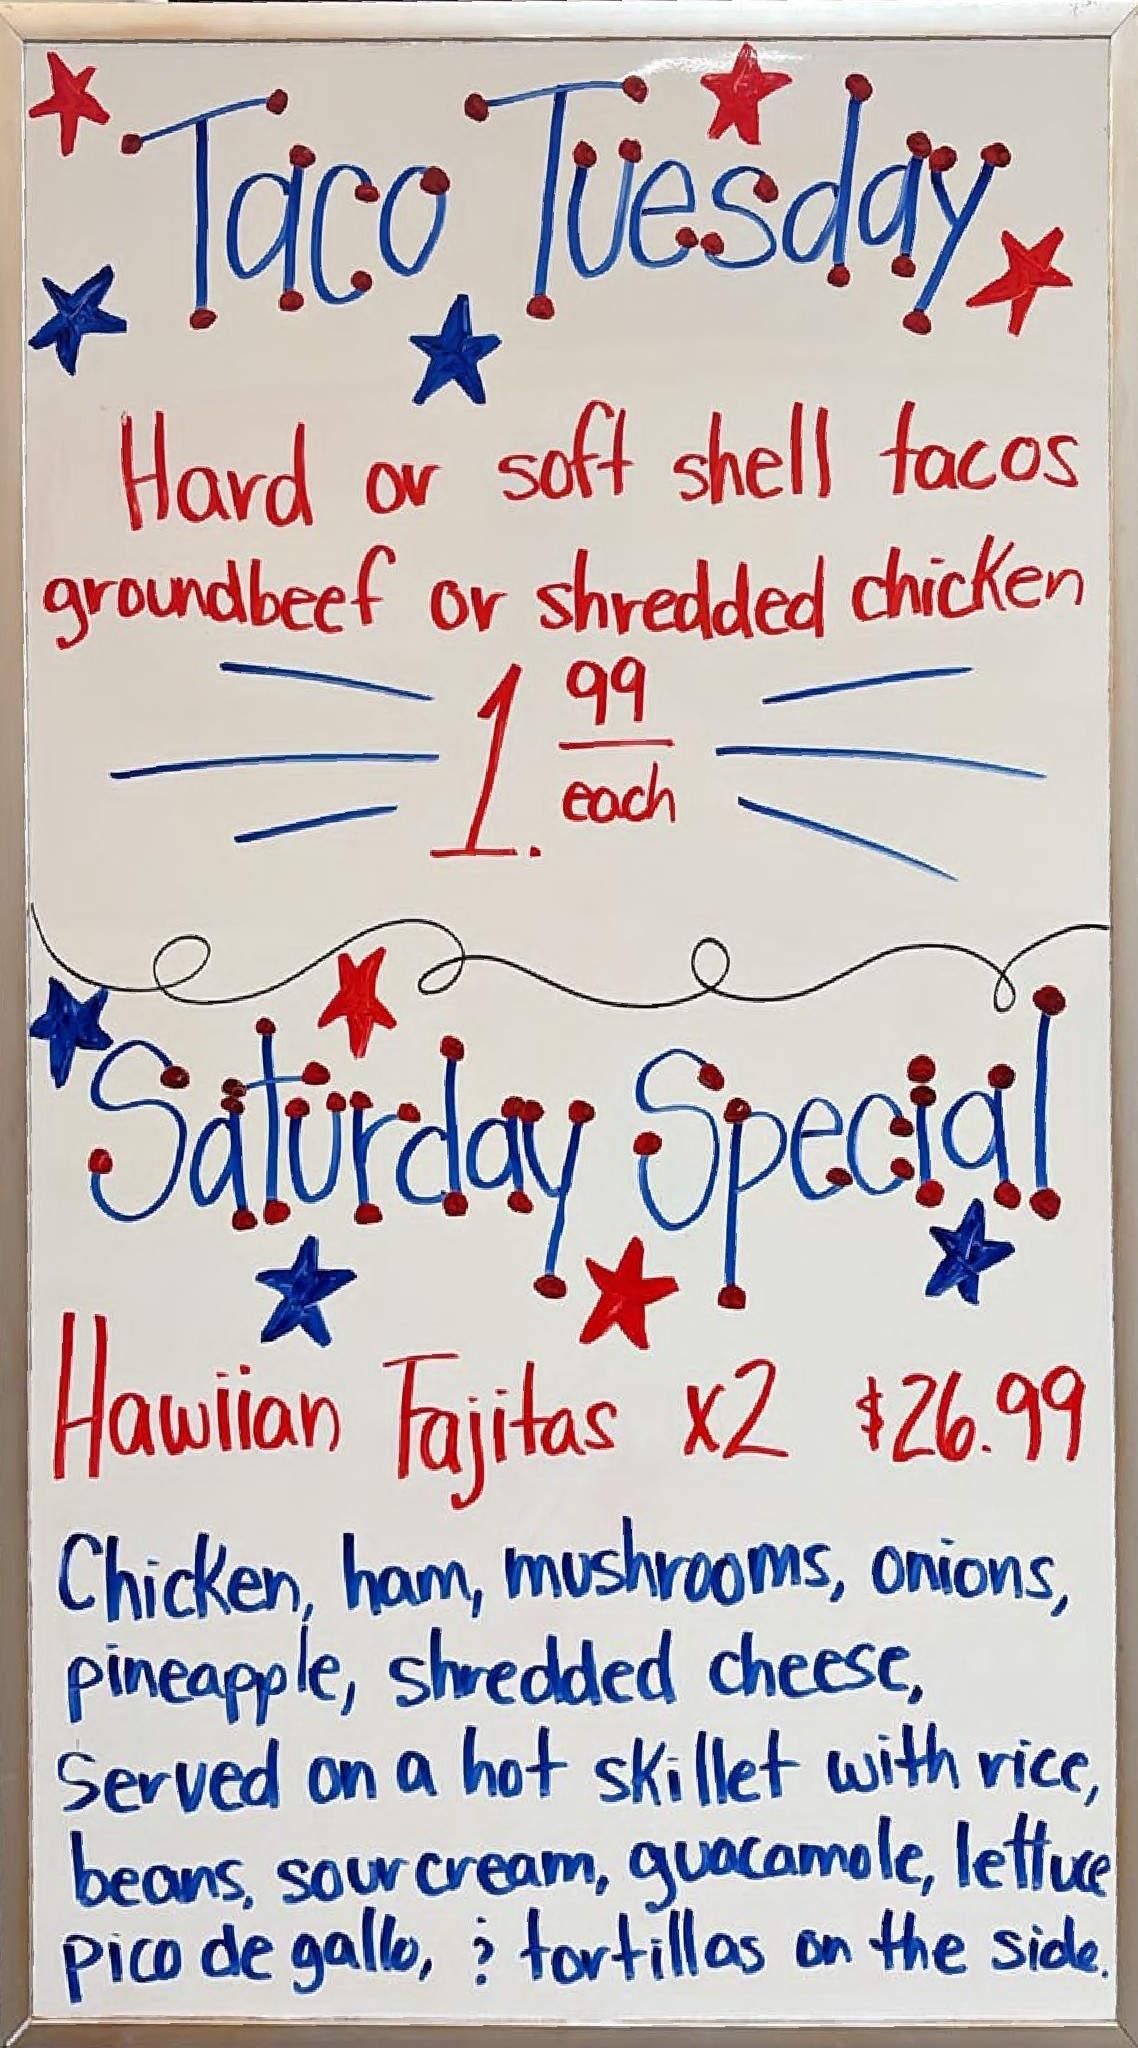 Taco Tuesday
Hard or soft shell tacos
groundbeef or shredded chicken
1. 99
each
Saturday Special
Hawiian Fajitas x2 $26.99
Chicken, ham, mushrooms, onions,
pineapple, shredded cheese,
Served on a hot skillet with rice,
beans, sour cream, guacamole, lettuce
pico de gallo, & tortillas on the side.